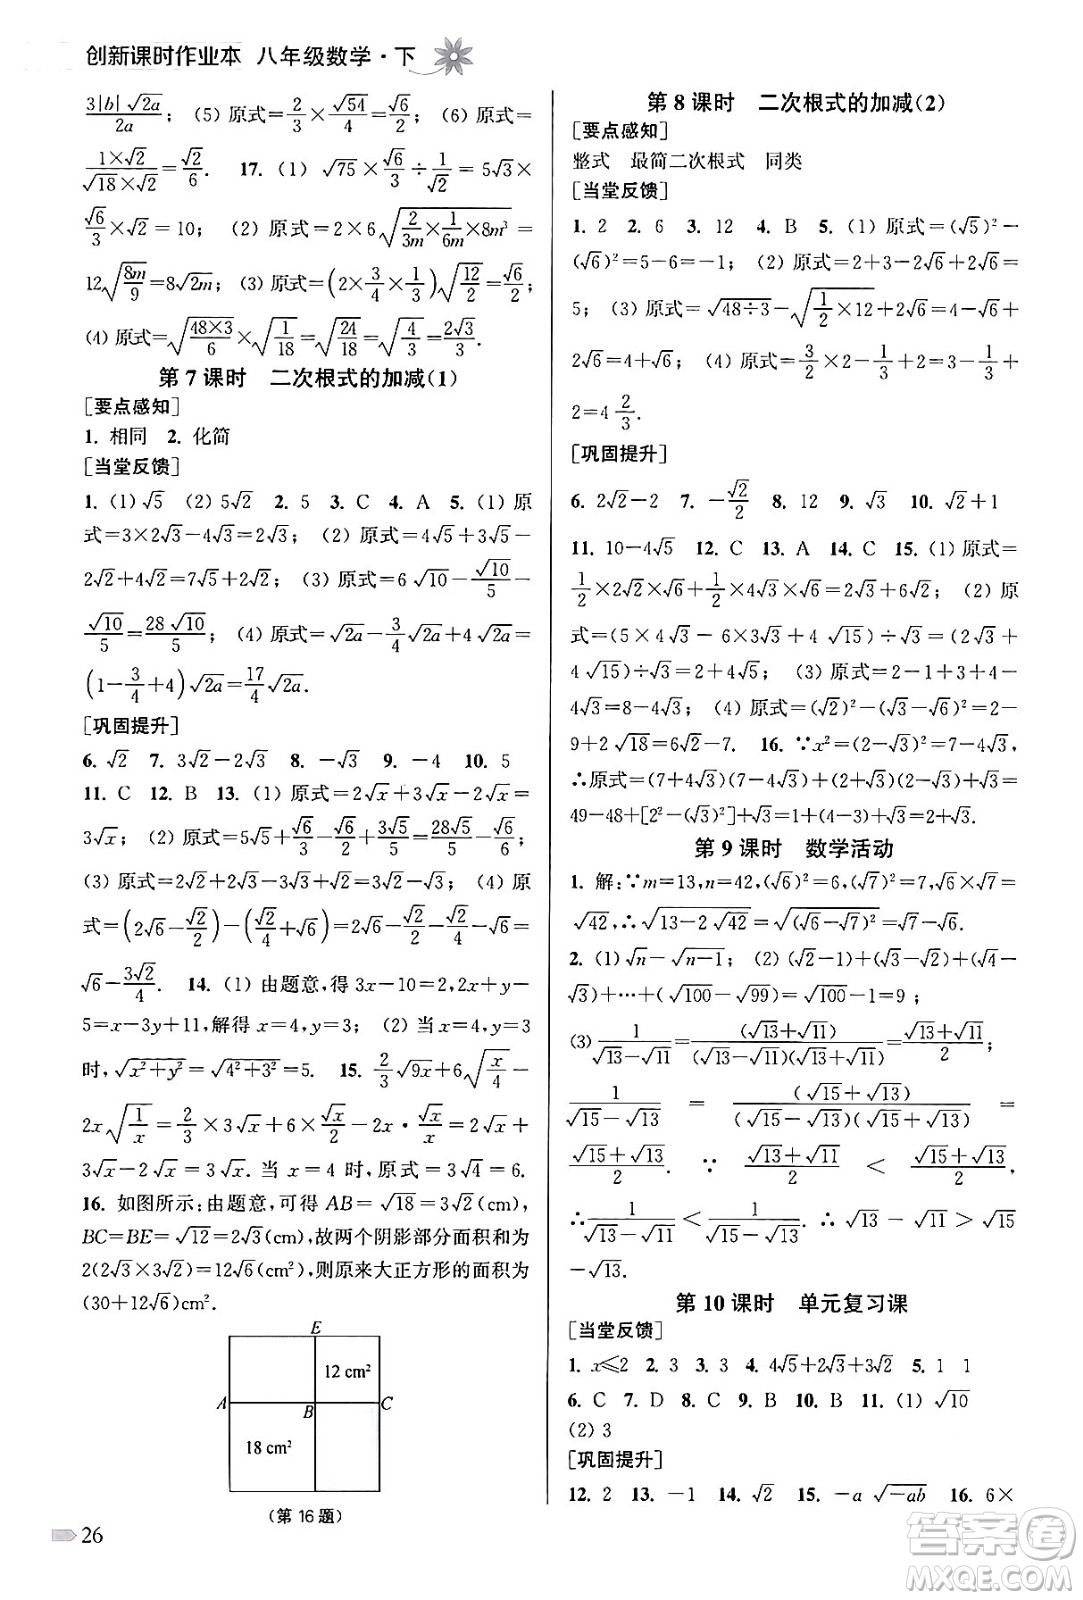 创新课时作业本 八年级数学·下
3|b|√(2a)/2a; (5) 原式=2/3×√54/4=√6/2; (6) 原式=
1×√2/(√18×√2)=√2/6. 17. (1) √75×√6/3÷1/√2=5√3×
√6/3×√2=10; (2) 原式=2×6√(2/3m×1/6m×8m³)=
12√(8m/9)=8√(2m); (3) 原式=(2×3/4×1/3)√(12/2)=√6/2;
(4) 原式=√(48×3)/6×√(1/18)=√(24/18)=√(4/3)=2√3/3.
第 7 课时 二次根式的加减(1)
[要点感知]
1. 相同 2. 化简
[当堂反馈]
1. (1) √5 (2) 5√2 2. 5 3. C 4. A 5. (1) 原
式=3×2√3-4√3=2√3; (2) 原式=4√5+3√5-
2√2+4√2=7√5+2√2; (3) 原式=6√10-√10/5-
√10/5=28√10/5; (4) 原式=√(2a)-3/4√(2a)+4√(2a)=
(1-3/4+4)√(2a)=17/4√(2a).
[巩固提升]
6. √2 7. 3√2-2√3 8. -√3 9. -4 10. 5
11. C 12. B 13. (1) 原式=2√x+3√x-2√x=
3√x; (2) 原式=5√5+√6/3-√6/2+3√5/5=28√5/5-√6/6;
(3) 原式=2√2+2√3-3√3+3√2=5√2-√3; (4) 原
式=(2√6-√2/2)-(√2/4+√6)=2√6-√2/2-√2/4-√6=
√6-3√2/4. 14. (1) 由题意,得 3x-10=2,2x+y-
5=x-3y+11,解得 x=4,y=3; (2) 当 x=4,y=3
时,√(x²+y²)=√(4²+3²)=5. 15. 2/3√(9x)+6√(x/4)-
2x√(1/x)=2/3×3√x+6×√x/2-2x·√x/x=2√x+
3√x-2√x=3√x. 当 x=4 时,原式=3√4=6.
16. 如图所示:由题意,可得 AB=√18=3√2(cm),
BC=BE=√12=2√3(cm),故两个阴影部分面积和为
2(2√3×3√2)=12√6(cm²),则原来大正方形的面积为
(30+12√6)cm².
E
12 cm²
A
B
C
18 cm²
(第 16 题)
26
第 8 课时 二次根式的加减(2)
[要点感知]
整式 最简二次根式 同类
[当堂反馈]
1. 2 2. 6 3. 12 4. B 5. (1) 原式=(√5)²-
(√6)²=5-6=-1; (2) 原式=2+3-2√6+2√6=
5; (3) 原式=√(48÷3)-√(1/2×12)+2√6=4-√6+
2√6=4+√6; (4) 原式=3/2×2-1/3×1+2=3-1/3+
2=4 2/3.
[巩固提升]
6. 2√2-2 7. -√2/2 8. 12 9. √3 10. √2+1
11. 10-4√5 12. C 13. A 14. C 15. (1) 原式=
1/2×2√2×√6+1/2×4√3×√6=2√3+6√2; (2) 原
式=(5×4√3-6×3√3+4√15)÷√3=(2√3+
4√15)÷√3=2+4√5; (3) 原式=2-1+3+4-
4√3=8-4√3; (4) 原式=(√2)²-(√3-√6)²=2-
9+2√18=6√2-7. 16. ∵x²=(2-√3)²=7-4√3,
∴原式=(7+4√3)(7-4√3)+(2+√3)(2-√3)+√3=
49-48+[2²-(√3)²]+√3=1+(4-3)+√3=2+√3.
第 9 课时 数学活动
1. 解:∵m=13,n=42,(√6)²=6,(√7)²=7,√6×√7=
√42,∴√(13-2√42)=√((√6-√7)²)=√7-√6.
2. (1) √n-√(n-1); (2) (√2-√1)+(√3-√2)+(√4-
√3)+…+(√100-√99)=√100-1=9;
(3) 1/(√13-√11)=(√13+√11)/((√13-√11)(√13+√11))=(√13+√11)/2;
1/(√15-√13)=(√15+√13)/((√15-√13)(√15+√13))=
(√15+√13)/2. ∵(√13+√11)/2<(√15+√13)/2,
∴1/(√13-√11)<1/(√15-√13). ∴√13-√11>√15
-√13.
第 10 课时 单元复习课
[当堂反馈]
1. x≤2 2. 3 3. 3 4. 4√5+2√3+3√2 5. 1 1
6. C 7. D 8. C 9. C 10. B 11. (1) √10
(2) 3
[巩固提升]
12. 2 13. -1 14. √2 15. -a√(-ab) 16. 6×
答案卷
MXQE.COM